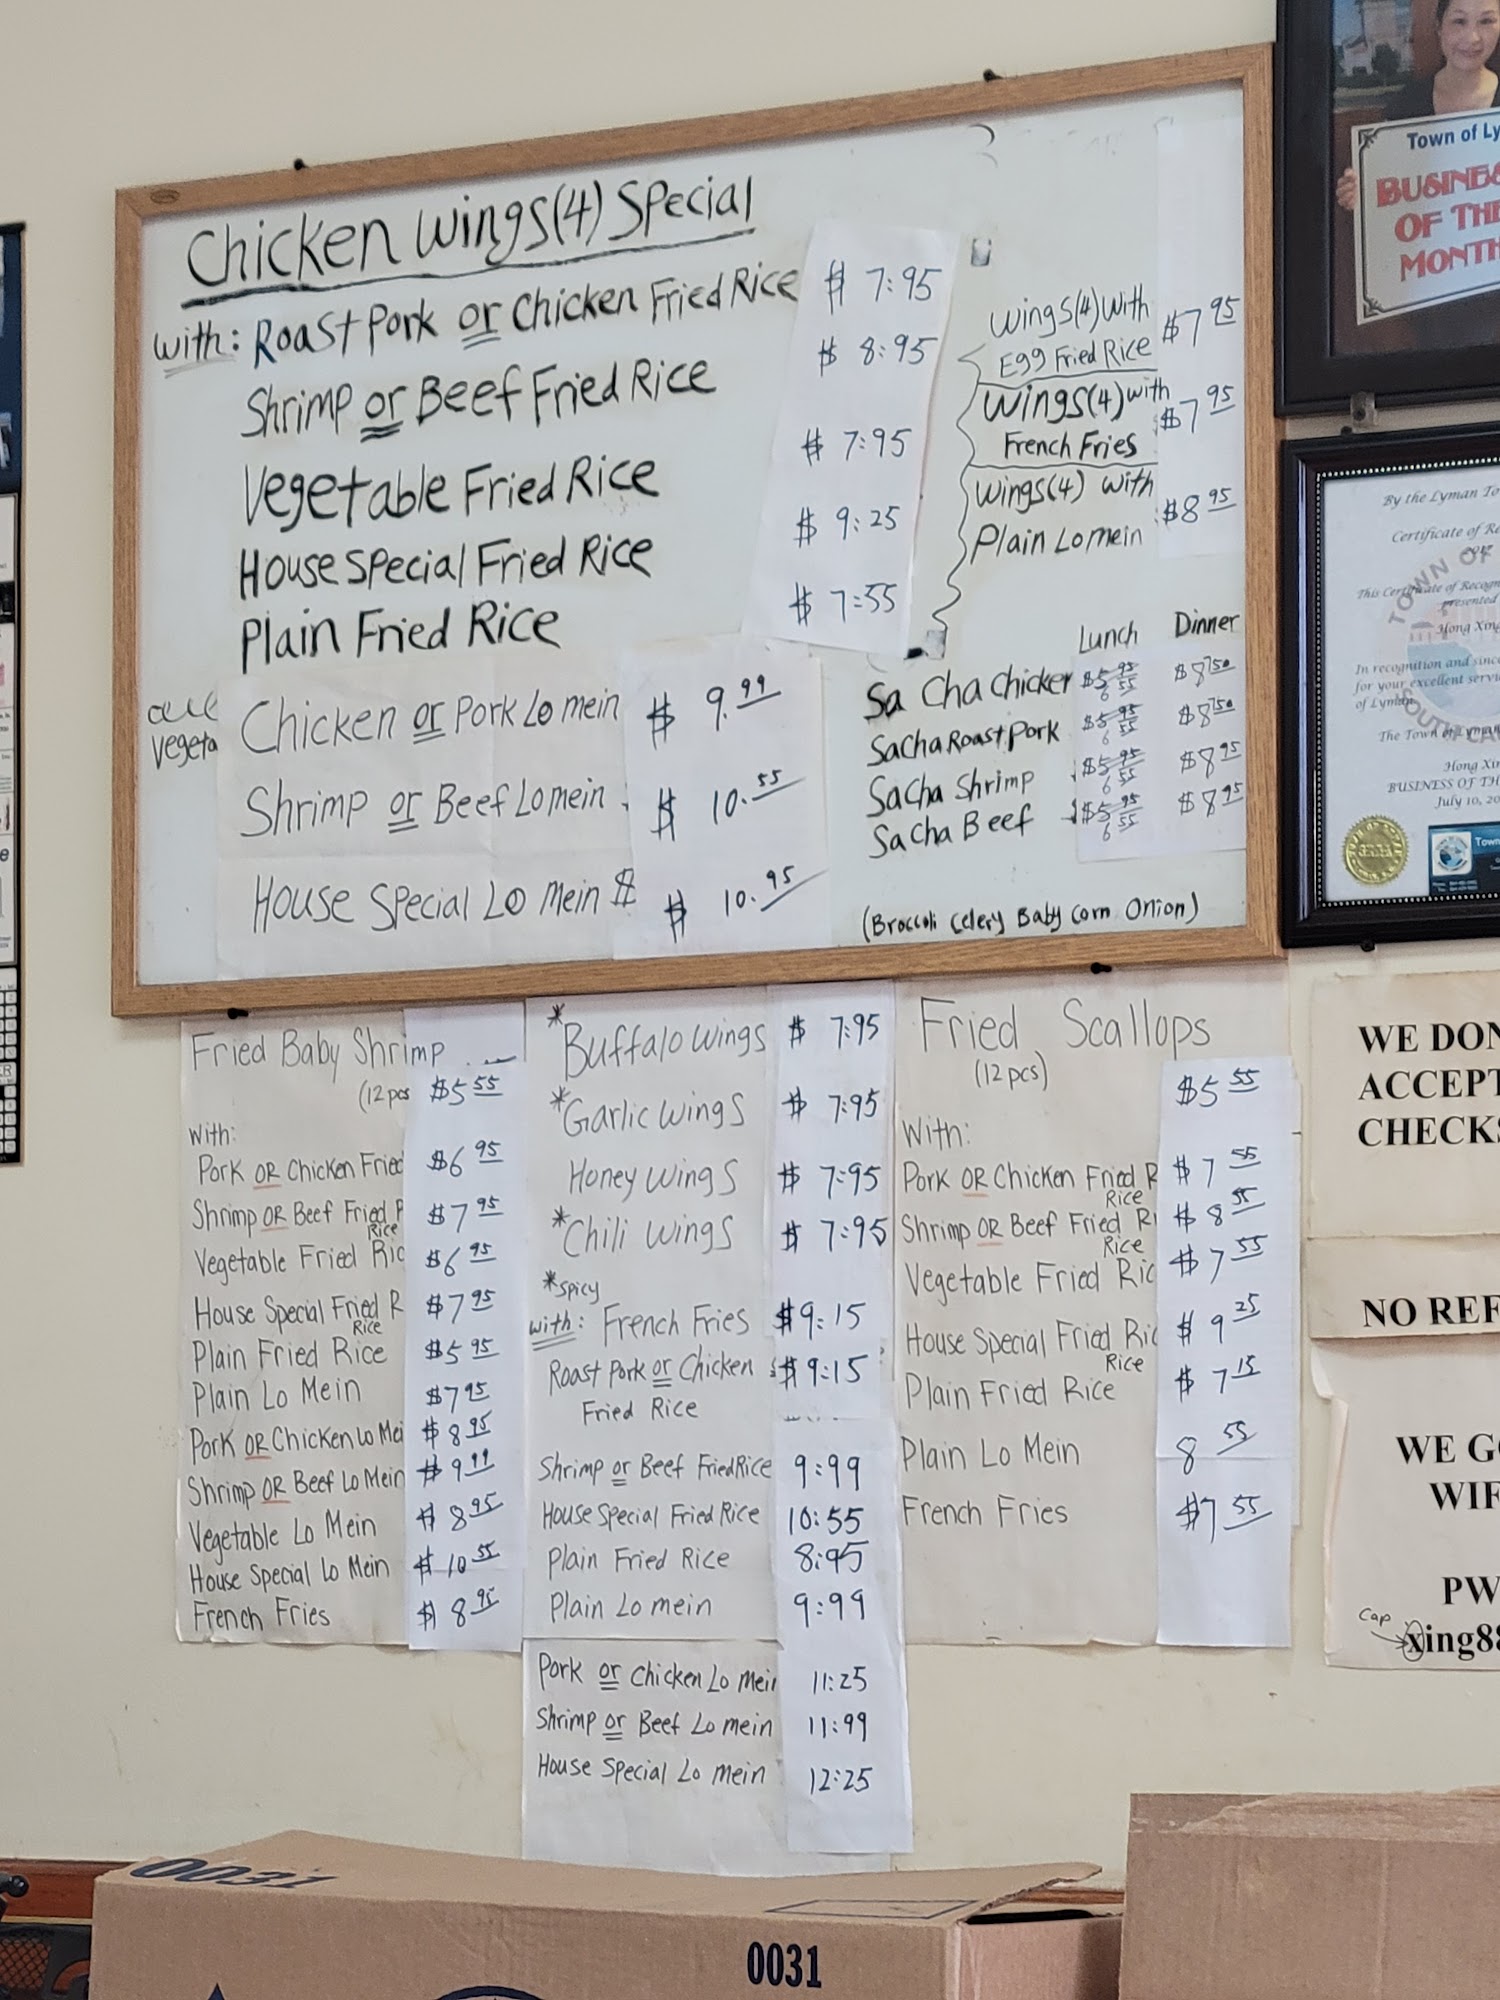 Chicken Wings(4) Special
with: Roast Pork or Chicken Fried Rice $ 7:95
Shrimp or Beef Fried Rice $ 8:95
Vegetable Fried Rice $ 7:95
House Special Fried Rice $ 9:25
Plain Fried Rice $ 7:55
Vegeta
Chicken or Pork Lo mein $ 9.99
Shrimp or Beef Lo mein $ 10.55
House Special Lo Mein $ $ 10.95
Wings(4) with
Egg Fried Rice $7 95
Wings(4) with
French Fries $7 95
Wings(4) with
Plain Lo mein $8 95
Lunch Dinner
Sa Cha Chicken $5 95 6 55 $8 750
Sa Cha Roast Pork $5 95 6 55 $8 750
Sa Cha Shrimp $5 95 6 55 $8 95
Sa Cha Beef $5 95 6 55 $8 95
(Broccoli Celery Baby Corn Onion)
Fried Baby Shrimp
(12 pcs $5 55
With:
Pork OR Chicken Fried $6 95
Shrimp OR Beef Fried R $7 95
Rice
Vegetable Fried Ric $6 95
House Special Fried R $7 95
Rice
Plain Fried Rice $5 95
Plain Lo Mein $7 95
Pork OR Chicken Lo Mei $8 95
Shrimp OR Beef Lo Mein $9 99
Vegetable Lo Mein $8 95
House Special Lo Mein $10 55
French Fries $8 95
*Buffalo Wings $ 7:95
*Garlic Wings $ 7:95
Honey Wings $ 7:95
*Chili Wings $ 7:95
*Spicy
with: French Fries $9:15
Roast Pork or Chicken $9:15
Fried Rice
Shrimp or Beef Fried Rice 9:99
House Special Fried Rice 10:55
Plain Fried Rice 8:95
Plain Lo mein 9:99
Pork or Chicken Lo Mein 11:25
Shrimp or Beef Lo mein 11:99
House Special Lo mein 12:25
Fried Scallops
(12 pcs) $5 55
With:
Pork OR Chicken Fried R $7 55
Rice
Shrimp OR Beef Fried Ri $8 55
Rice
Vegetable Fried Ric $7 55
House Special Fried Ric $9 25
Rice
Plain Fried Rice $7 15
Plain Lo Mein 8 55
French Fries $7 55
Town of Ly
BUSINES
OF THE
MONTH
By the Lyman To
Certificate of Re
This Certificate of Recogn
presented
Hong Xing
In recognition and since
for your excellent servi
of Lyman
The Town of Lyman
Hong Xin
BUSINESS OF TH
July 10, 20
TOWN OF
SOUTH CA
WE DON
ACCEPT
CHECKS
NO REF
WE G
WIF
PW
Cap
xing88
0031
0031